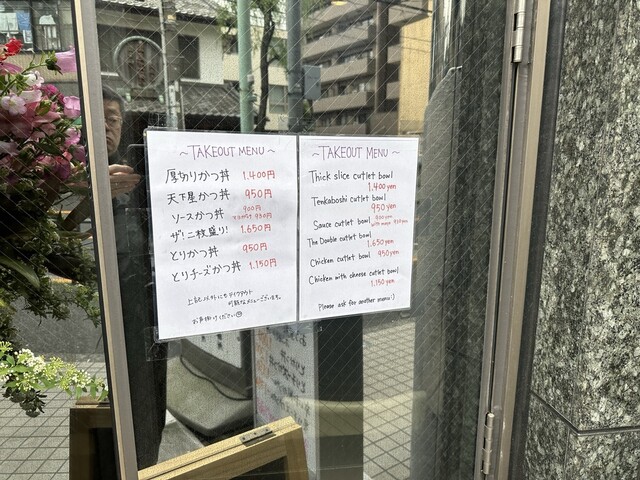 ~TAKEOUT MENU~
厚切りかつ丼 1.400円
天下星かつ丼 950円
ソースかつ丼 900円
930円
ザ!二枚盛り! 1.650円
とりかつ丼 950円
とりチーズかつ丼 1.150円
上記以外にもテイクアウト
可能なメニューございます。
お声掛けください
~TAKEOUT MENU~
Thick slice cutlet bowl
1.400 yen
Tenkaboshi cutlet bowl
950 yen
Sauce cutlet bowl 900 yen
with mayo 930 yen
The Double cutlet bowl
1.650 yen
Chicken cutlet bowl 950 yen
Chicken with cheese cutlet bowl
1.150 yen
Please ask for another menu:)